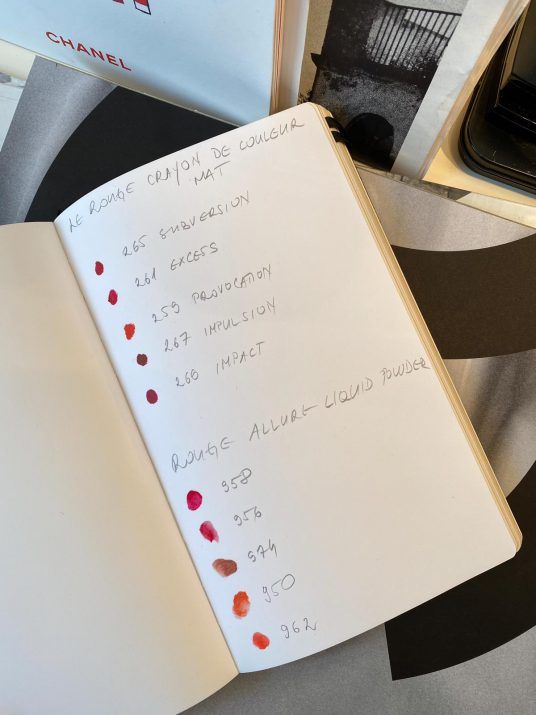 CHANEL
LE ROUGE CRAYON DE COULEUR
MAT
265 SUBVERSION
261 EXCESS
259 PROVOCATION
267 IMPULSION
266 IMPACT
ROUGE ALLURE LIQUID POWDER
958
956
974
950
962